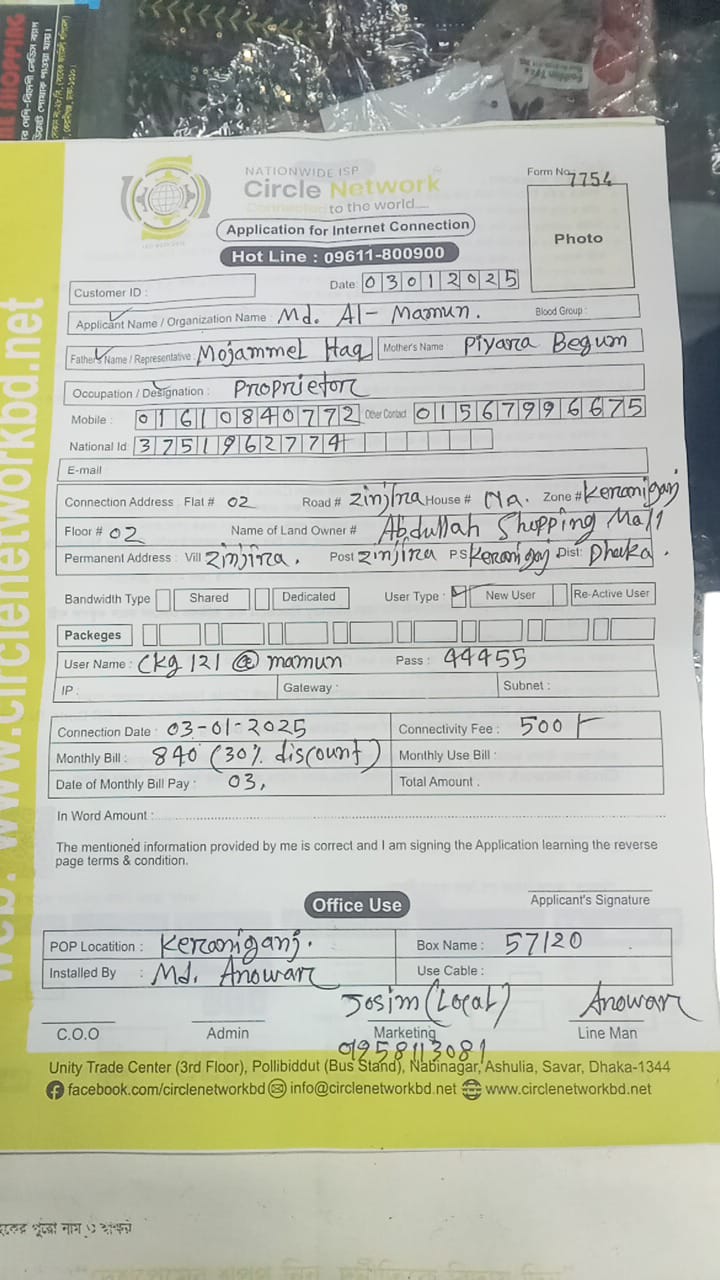 SHOPPING
NATIONWIDE ISP
Circle Network
Connected to the world....
Form No. 7754
Application for Internet Connection
Hot Line : 09611-800900
Photo
Customer ID :
Date: 03012025
Applicant Name / Organization Name : Md. Al-Mamun. Blood Group :
Father's Name / Representative : Mojammel Haq Mother's Name Piyara Begum
Occupation / Designation : Proprietor
Mobile : 01610840772 Other Contact 01567996675
National Id: 3751962774
E-mail
Connection Address Flat # 02 Road # Zinjira House # Na. Zone # Keraniganj
Floor # 02 Name of Land Owner # Abdullah Shopping Mall
Permanent Address : Vill Zinjira. Post Zinjira P.S Keraniganj Dist: Dhaka.
Bandwidth Type Shared Dedicated User Type : New User Re-Active User
Packeges
User Name : Ckg 121 @ mamun Pass : 44455
IP : Gateway : Subnet :
Connection Date : 03-01-2025 Connectivity Fee : 500/-
Monthly Bill : 840 (30% discount) Monthly Use Bill :
Date of Monthly Bill Pay : 03, Total Amount :
In Word Amount :
The mentioned information provided by me is correct and I am signing the Application learning the reverse
page terms & condition.
Applicant's Signature
Office Use
POP Locatition : Keraniganj. Box Name : 57/20
Installed By : Md. Anowar Use Cable :
Josim (Local) Anowar
C.O.O Admin Marketing Line Man
01958113081
Unity Trade Center (3rd Floor), Pollibiddut (Bus Stand), Nabinagar, Ashulia, Savar, Dhaka-1344
facebook.com/circlenetworkbd info@circlenetworkbd.net www.circlenetworkbd.net
web: www.circlenetworkbd.net